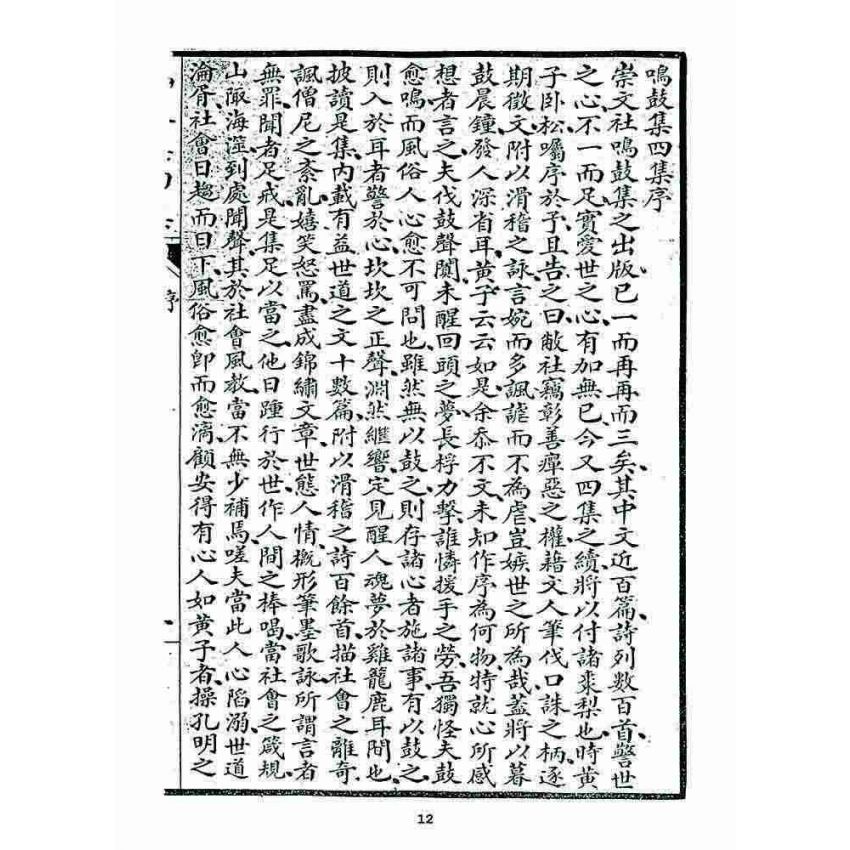 鳴鼓集四集序
崇文社鳴鼓集之出版已一而再再而三矣、其中文近百篇、詩列數百首、警世
之心不一而足、實愛世之心有加無已、今又四集之續、將以付諸棗梨也、時黃
子臥松囑序於予、且告之曰、敝社竊彰善癉惡之權、藉文人筆伐口誅之柄、逐
期徵文、附以滑稽之詠、言婉而多諷、謔而不為虐、豈嫉世之所為哉、蓋將以暮
鼓晨鐘、發人深省耳、黃子云云如是、余忝不文、未知作序為何物、特就心所感
想者言之、夫伐鼓聲闐、未醒回頭之夢、長桴力擊、誰憐援手之勞、吾獨怪夫鼓
愈鳴而風俗人心愈不可問也、雖然無以鼓之、則存諸心者施諸事、有以鼓之、
則入於耳者警於心、坎坎之正聲、淵然繼響、定見醒人魂夢於雞籠鹿耳間也、
披讀是集、內載有益世道之文十數篇、附以滑稽之詩百餘首、描社會之離奇、
諷僧尼之紊亂、嬉笑怒罵、盡成錦繡文章、世態人情、概形筆墨歌詠、所謂言者
無罪、聞者足戒、是集足以當之、他日踵行於世、作人間之棒喝、當社會之箴規、
山陬海澨、到處聞聲、其於社會風教、當不無少補焉、嗟夫、當此人心陷溺、世道
淪胥、社會日趨而日下、風俗愈卽而愈漓、顧安得有心人如黃子者、操孔明之
序
12